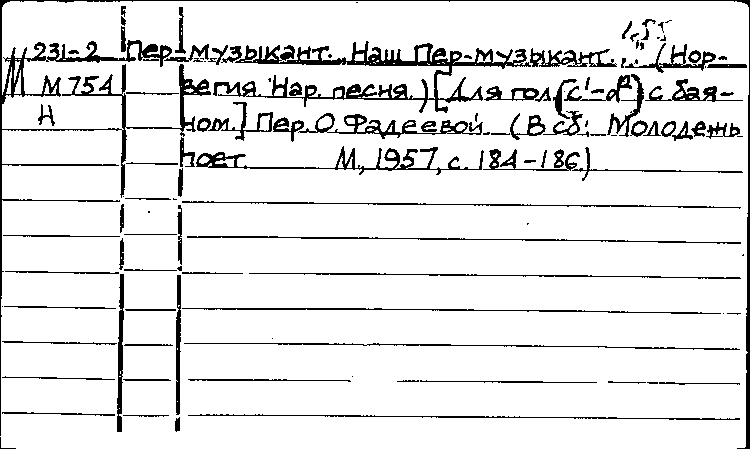 231-2 Пер-музыкант. „Наш Пер-музыкант..." (Нор-
М М754 вегия. Нар. песня.) [Для гол. (c¹-d²) с бая-
Н ном.] Пер. О. Фадеевой. (В сб: Молодежь
поет. М., 1957, с. 184-186.)